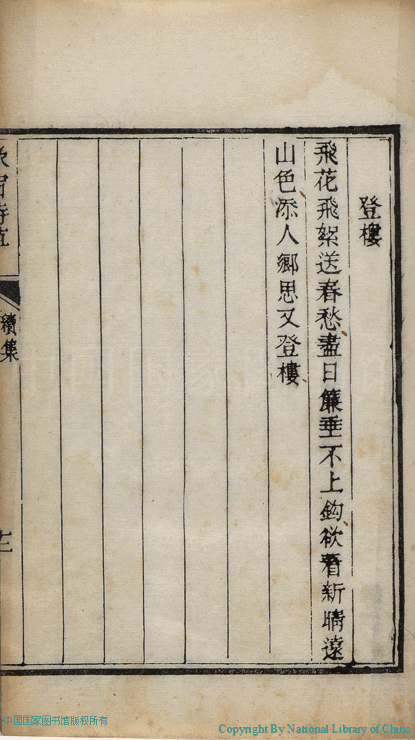 登樓
飛花飛絮送春愁盡日簾垂不上鈎欲看新晴遠
山色添人鄉思又登樓
續集
中国国家图书馆版权所有
Copyright By National Library of China